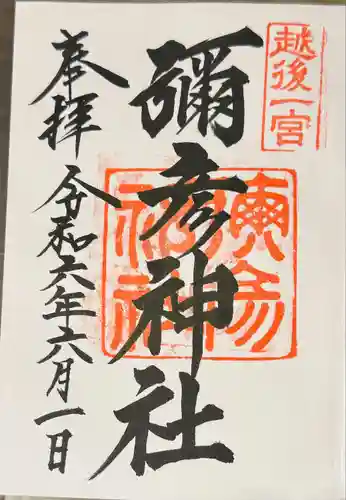 越後一宮
彌彦神社
奉拝
令和六年六月一日